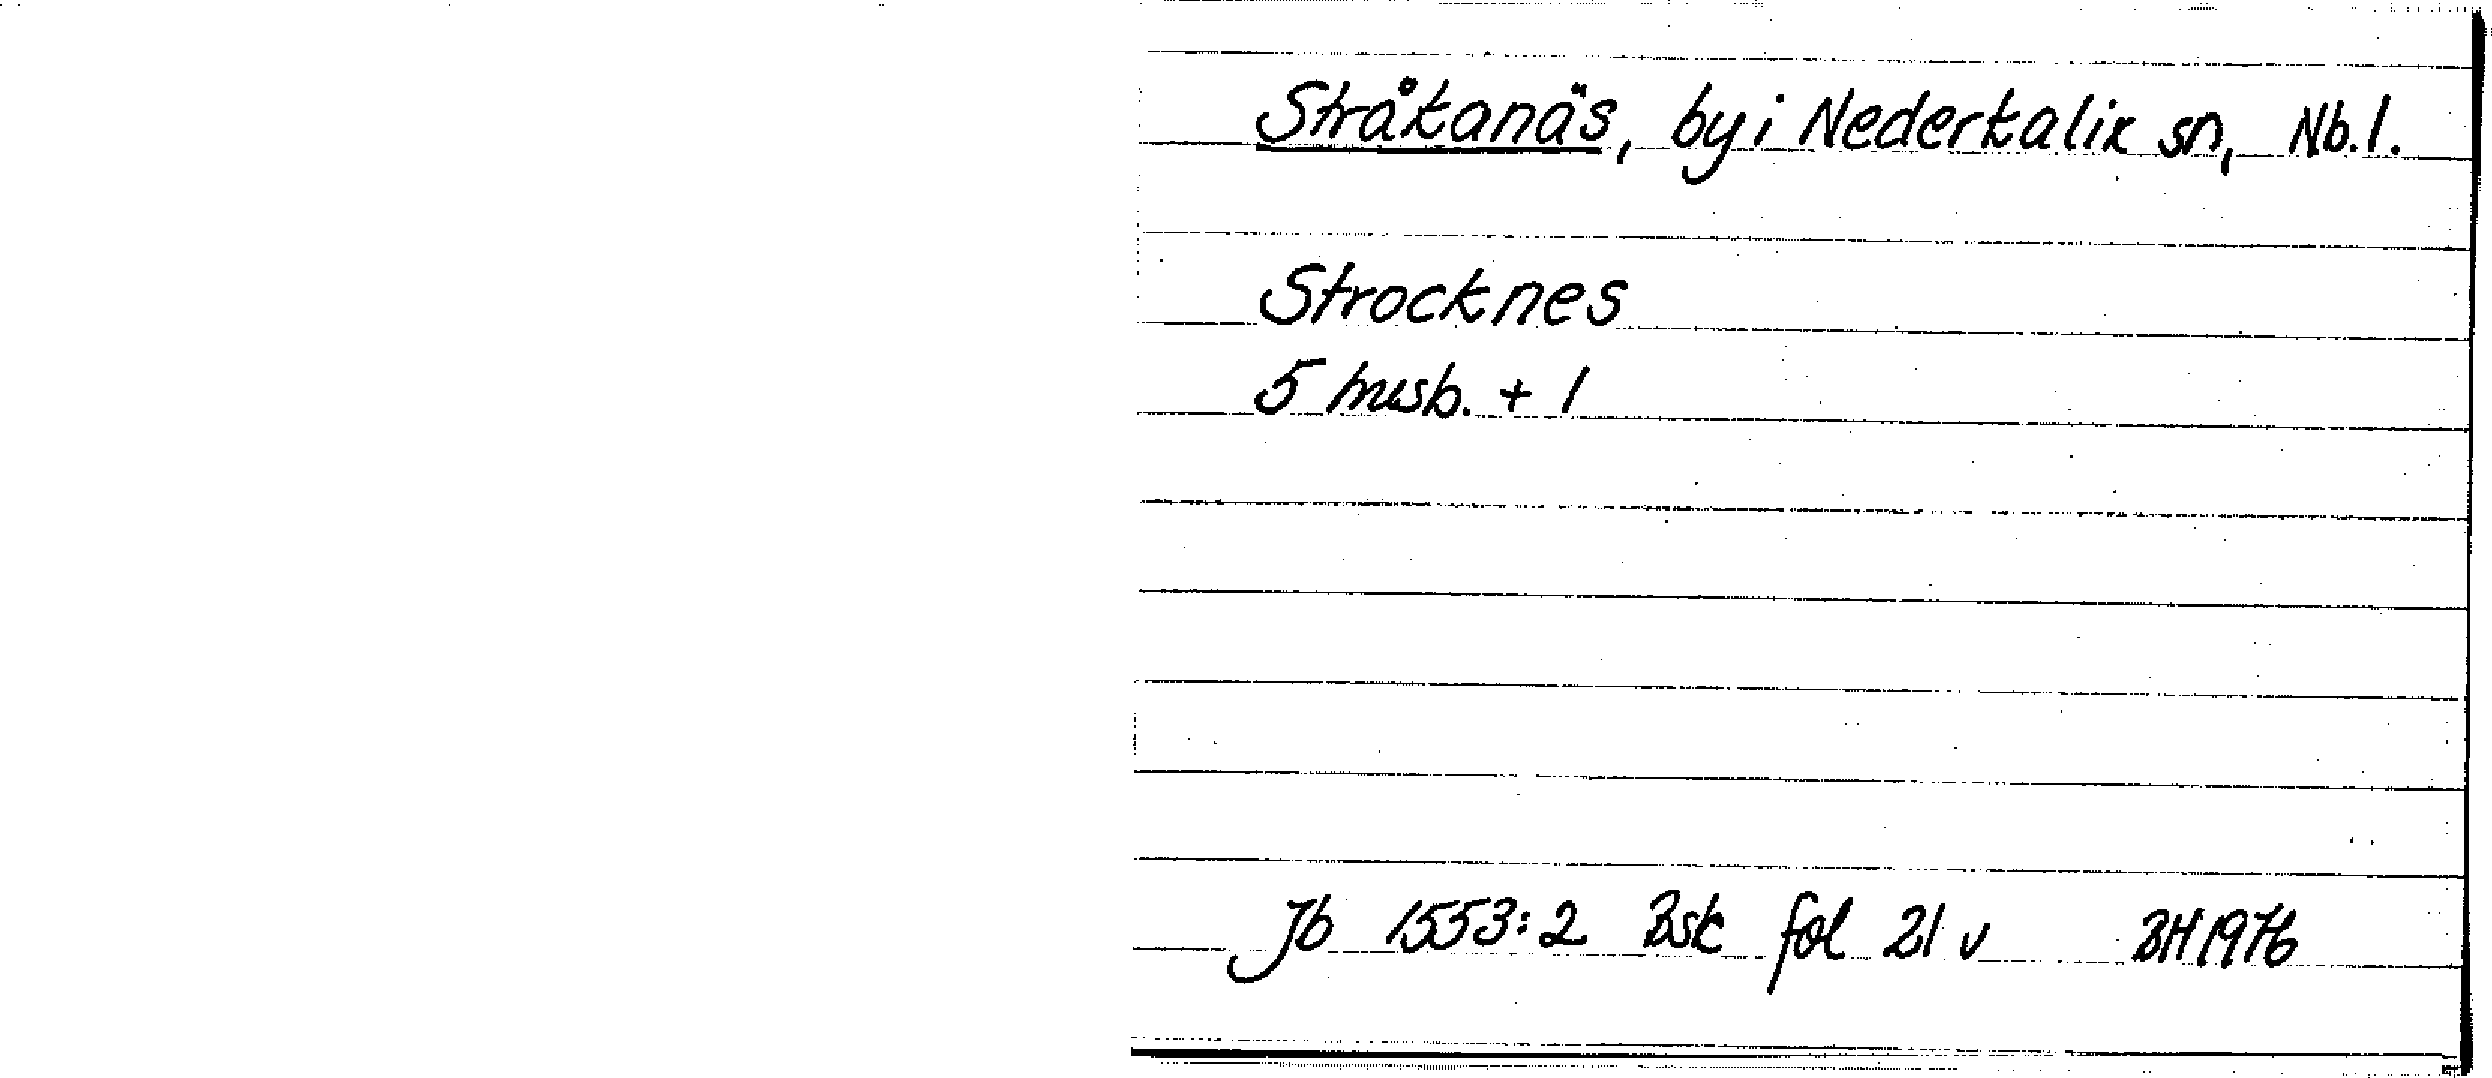 Stråkanäs, by i Nederkalix sn, Nb.l.
Strocknes
5 husb. + 1
Jb 1553:2 Bsk fol 21 v BH 1976